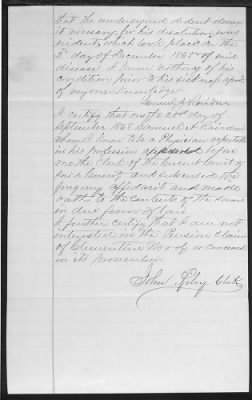 that the undersigned
it necessary for his
evident, which took place on the
3rd day of December 1865 of said
disease. I know nothing of his
condition prior to his sickness
of my own knowledge.
Samuel A
I certify that on the 22d day of
September 1868 Samuel A
whom I know to be a Physician reputable
in his profession appeared before
me the Clerk of the Circuit Court of
said County and subscribed the
foregoing affidavit and made
oath to the contents of the same
in due form of law.
I further certify that I am not
interested in the Pension Claim
of Clementine Moody or concerned
in its prosecution
John Clerk